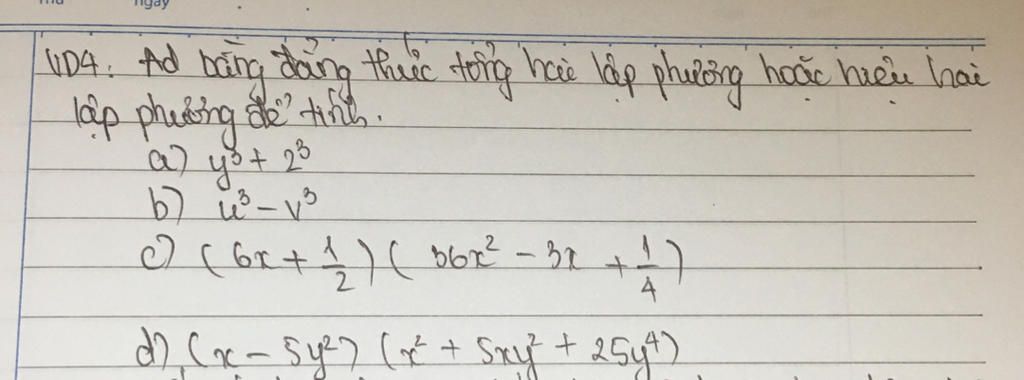 Thứ ngày
VD4: Ad bằng đẳng thức tổng hai lập phương hoặc hiệu hai
lập phương để tính.
a) y³ + 2³
b) u³ - v³
c) (6x + 1/2) (36x² - 3x + 1/4)
d) (x - 5y²) (x² + 5xy² + 25y⁴)